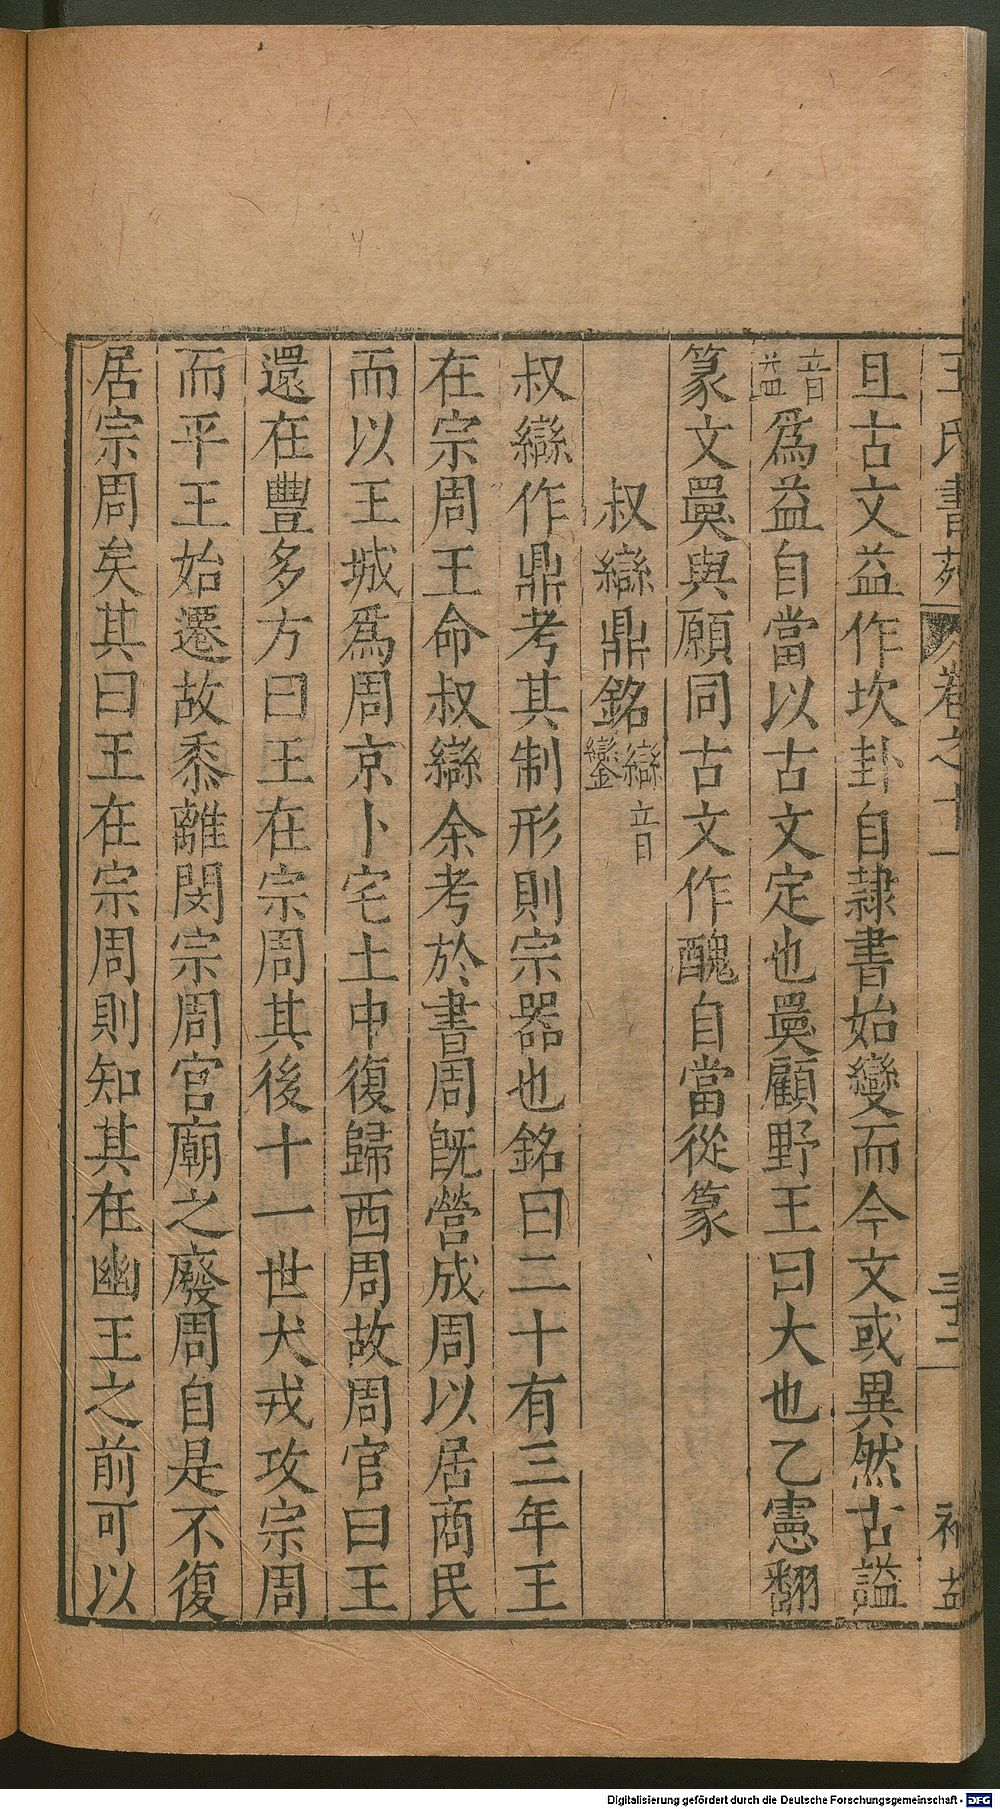 王氏書苑 卷之十一 三十二 補
且古文益作坎卦自隸書始變而今文或異然古謚
音益爲益自當以古文定也㒻顧野王曰大也乙憲翻
篆文㒻與願同古文作醜自當從篆
叔䜌鼎銘䜌音鑾
叔䜌作鼎考其制形則宗器也銘曰二十有三年王
在宗周王命叔䜌余考於書周旣營成周以居商民
而以王城爲周京卜宅土中復歸西周故周官曰王
還在豐多方曰王在宗周其後十一世犬戎攻宗周
而平王始遷故黍離閔宗周宮廟之廢周自是不復
居宗周矣其曰王在宗周則知其在幽王之前可以
Digitalisierung gefördert durch die Deutsche Forschungsgemeinschaft - DFG